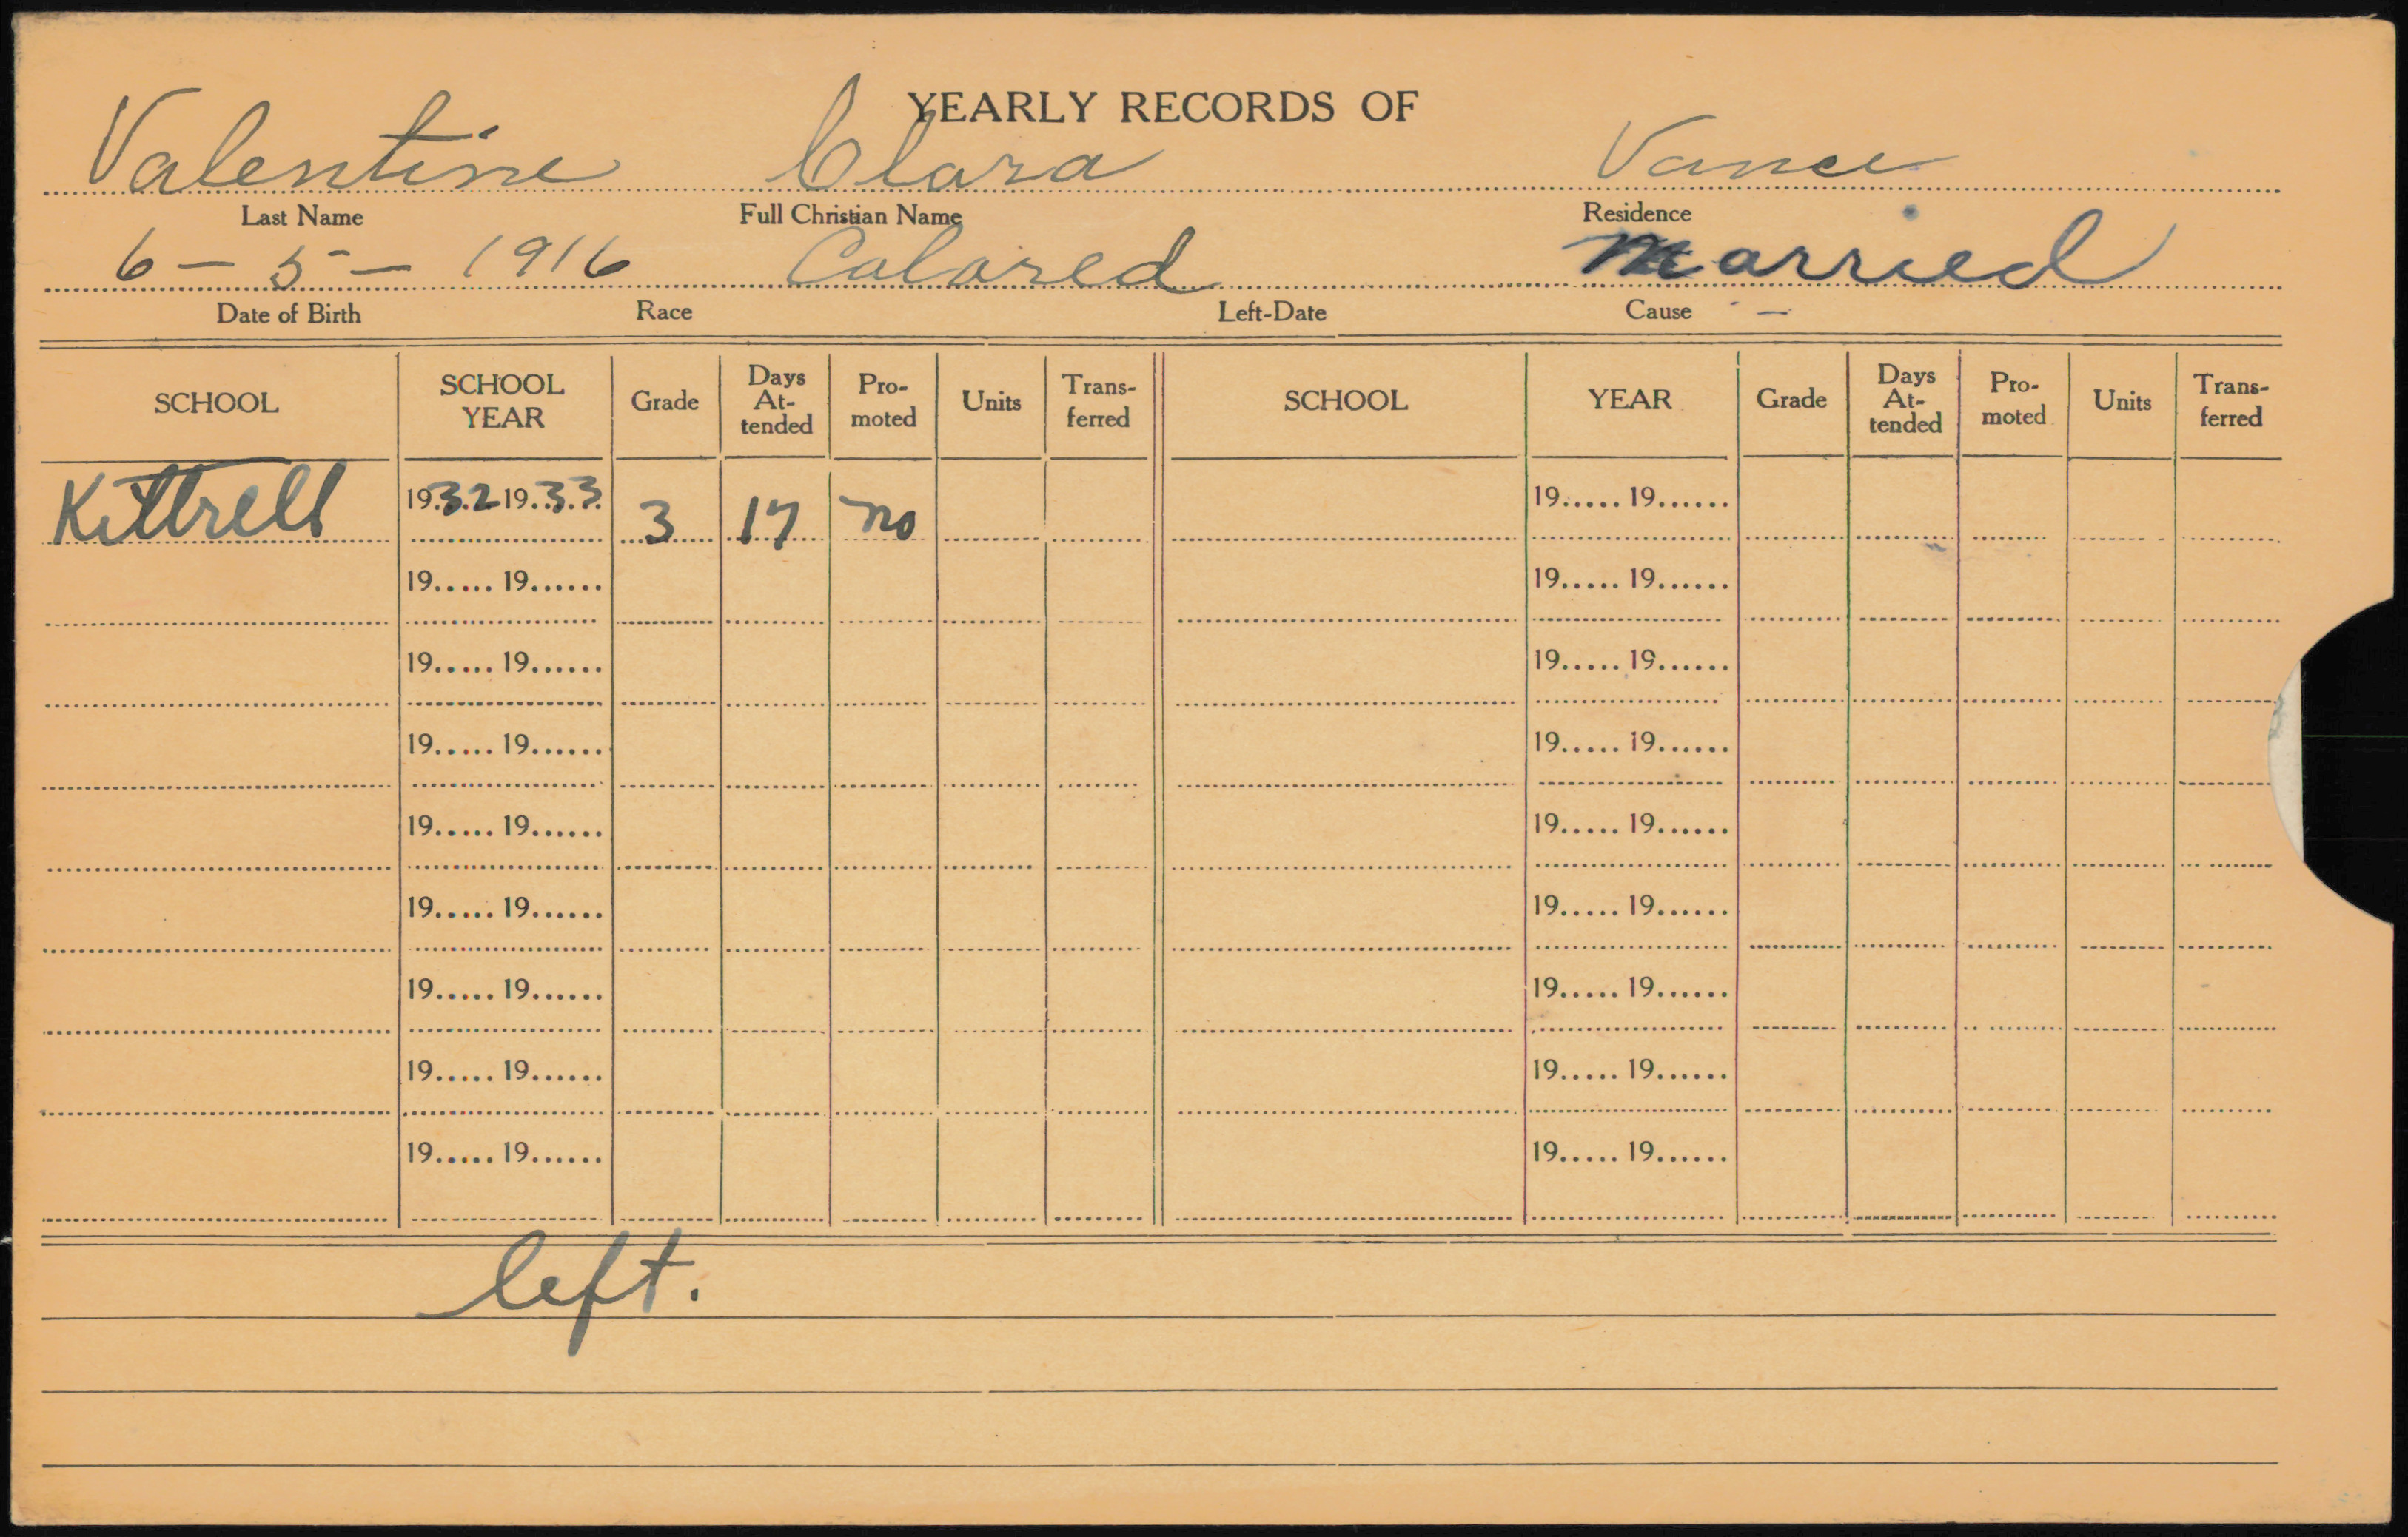 YEARLY RECORDS OF
Valentine Clara Vance
Last Name Full Christian Name Residence
6 - 5 - 1916 Colored Married
Date of Birth Race Left-Date Cause -
SCHOOL SCHOOL YEAR Grade Days At-tended Pro-moted Units Trans-ferred SCHOOL YEAR Grade Days At-tended Pro-moted Units Trans-ferred
Kittrell 1932 1933 3 17 no 19...... 19......
19...... 19...... 19...... 19......
19...... 19...... 19...... 19......
19...... 19...... 19...... 19......
19...... 19...... 19...... 19......
19...... 19...... 19...... 19......
19...... 19...... 19...... 19......
19...... 19...... 19...... 19......
19...... 19...... 19...... 19......
left.